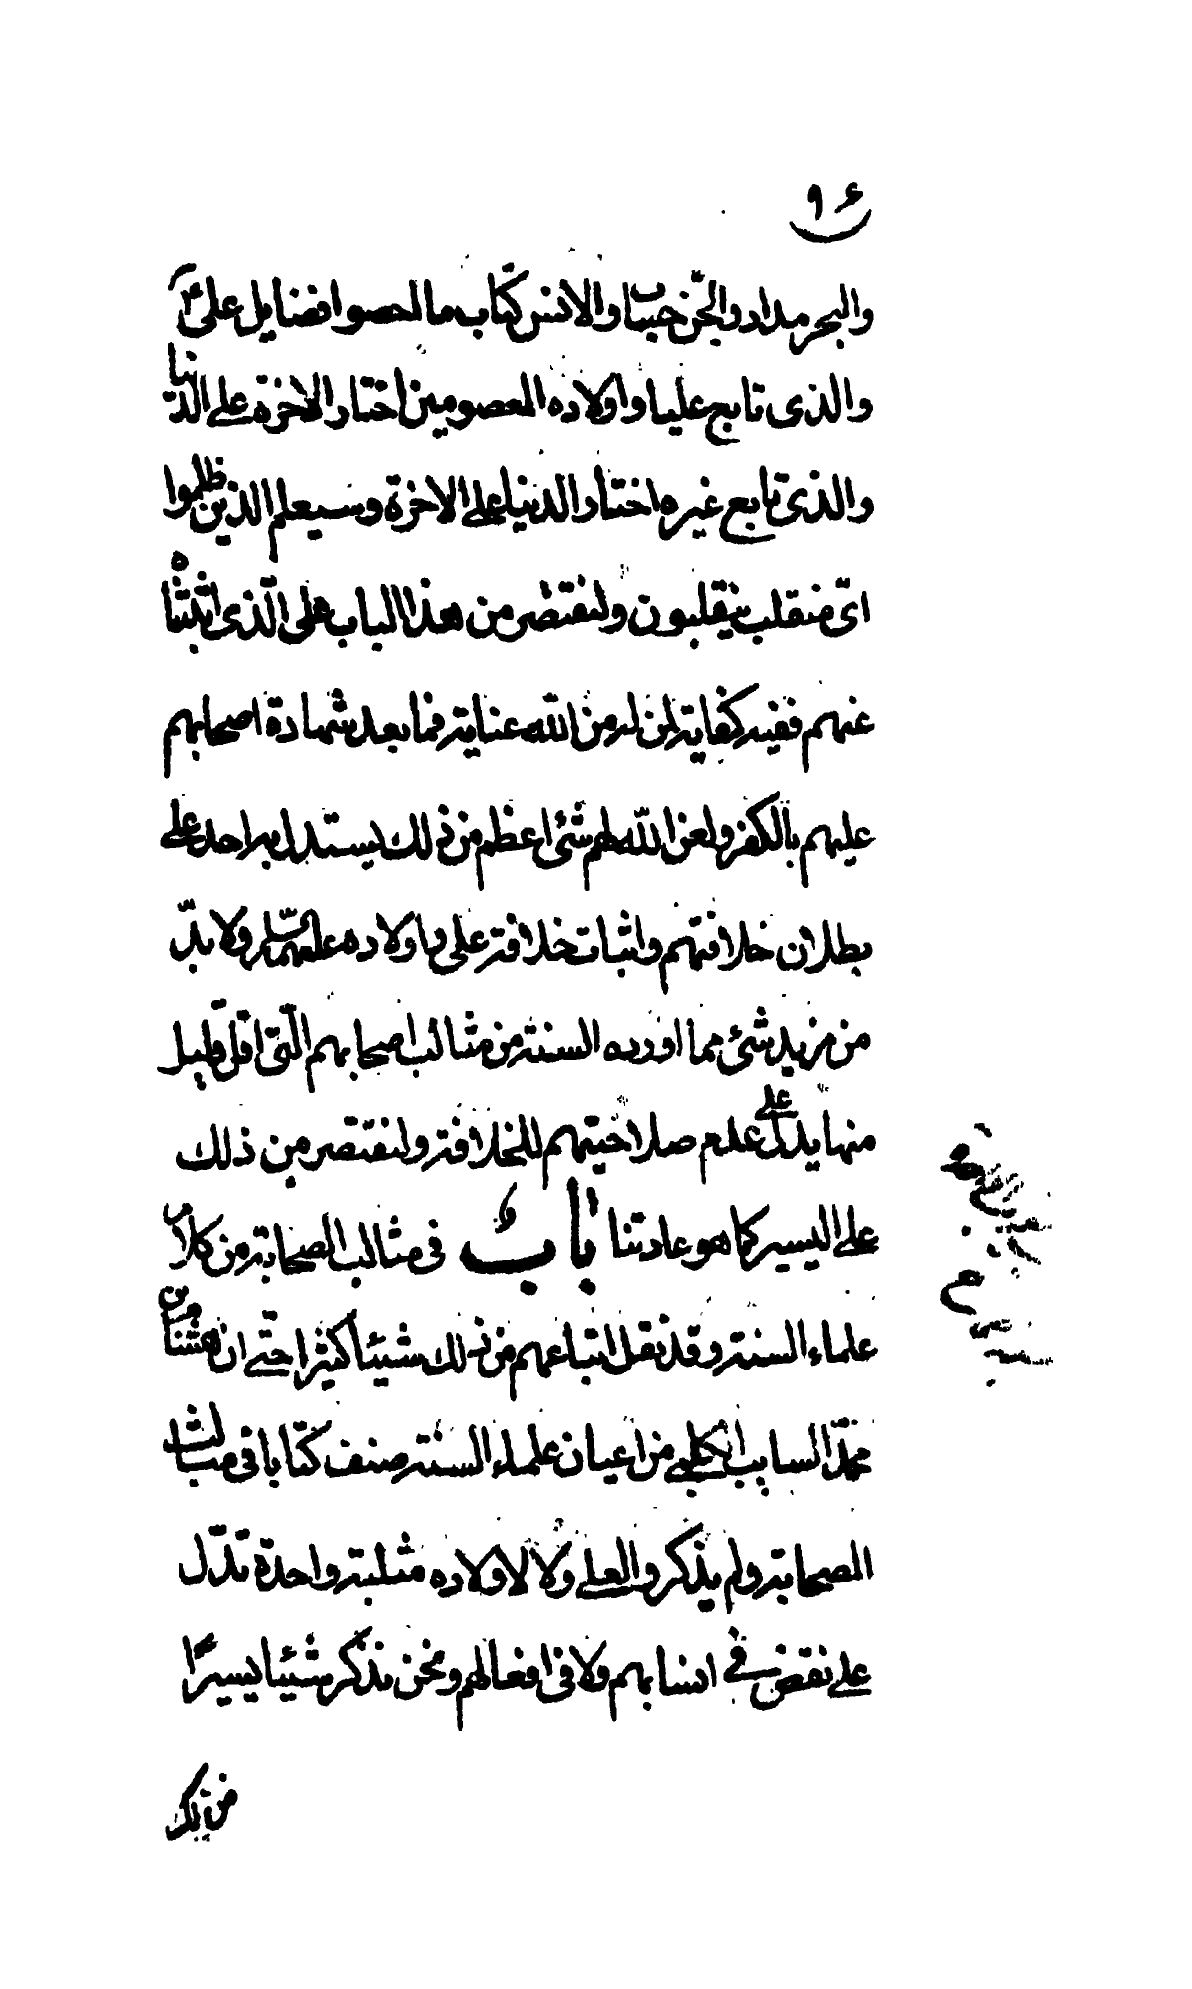 ٩٤
والبحر مداد والجن حساب والانس كتاب ما احصوا فضايل على ع
والذى تابع عليا واولاده المعصومين اختار الاخرة على الدنيا
والذى تابع غيره اختار الدنيا على الاخرة وسيعلم الذين ظلموا
اىّ منقلب ينقلبون ولنقتصر من هذا الباب على الّذى اثبتناه
عنهم ففيه كفاية لمن له من الله عناية فما بعد شهادة اصحابهم
عليهم بالكفر ولعن الله لهم شئ اعظم من ذلك يستدل به احد على
بطلان خلافتهم واثبات خلافة على واولاده عليهم السلام ولا بدّ
من مزيد شئ مما اورده السنة من مثالب اصحابهم الّتى اقلّ قليل
منها يدلّ على عدم صلاحيتهم للخلافة ولنقتصر من ذلك
على اليسير كما هو عادتنا باب فى مثالب الصحابة من كلام
علماء السنة وقد نقل اتباعهم من ذلك شيئا كثيرا حتّى ان هشام بن
محمّد السايب الكلبى من اعيان علماء السنة صنف كتابا فى مثالب
الصحابة ولم يذكروا لعلى ولا لاولاده مثلبة واحدة تدّل
على نقض فى انسابهم ولا فى افعالهم ونحن نذكر شيئا يسيرًا
من تلك